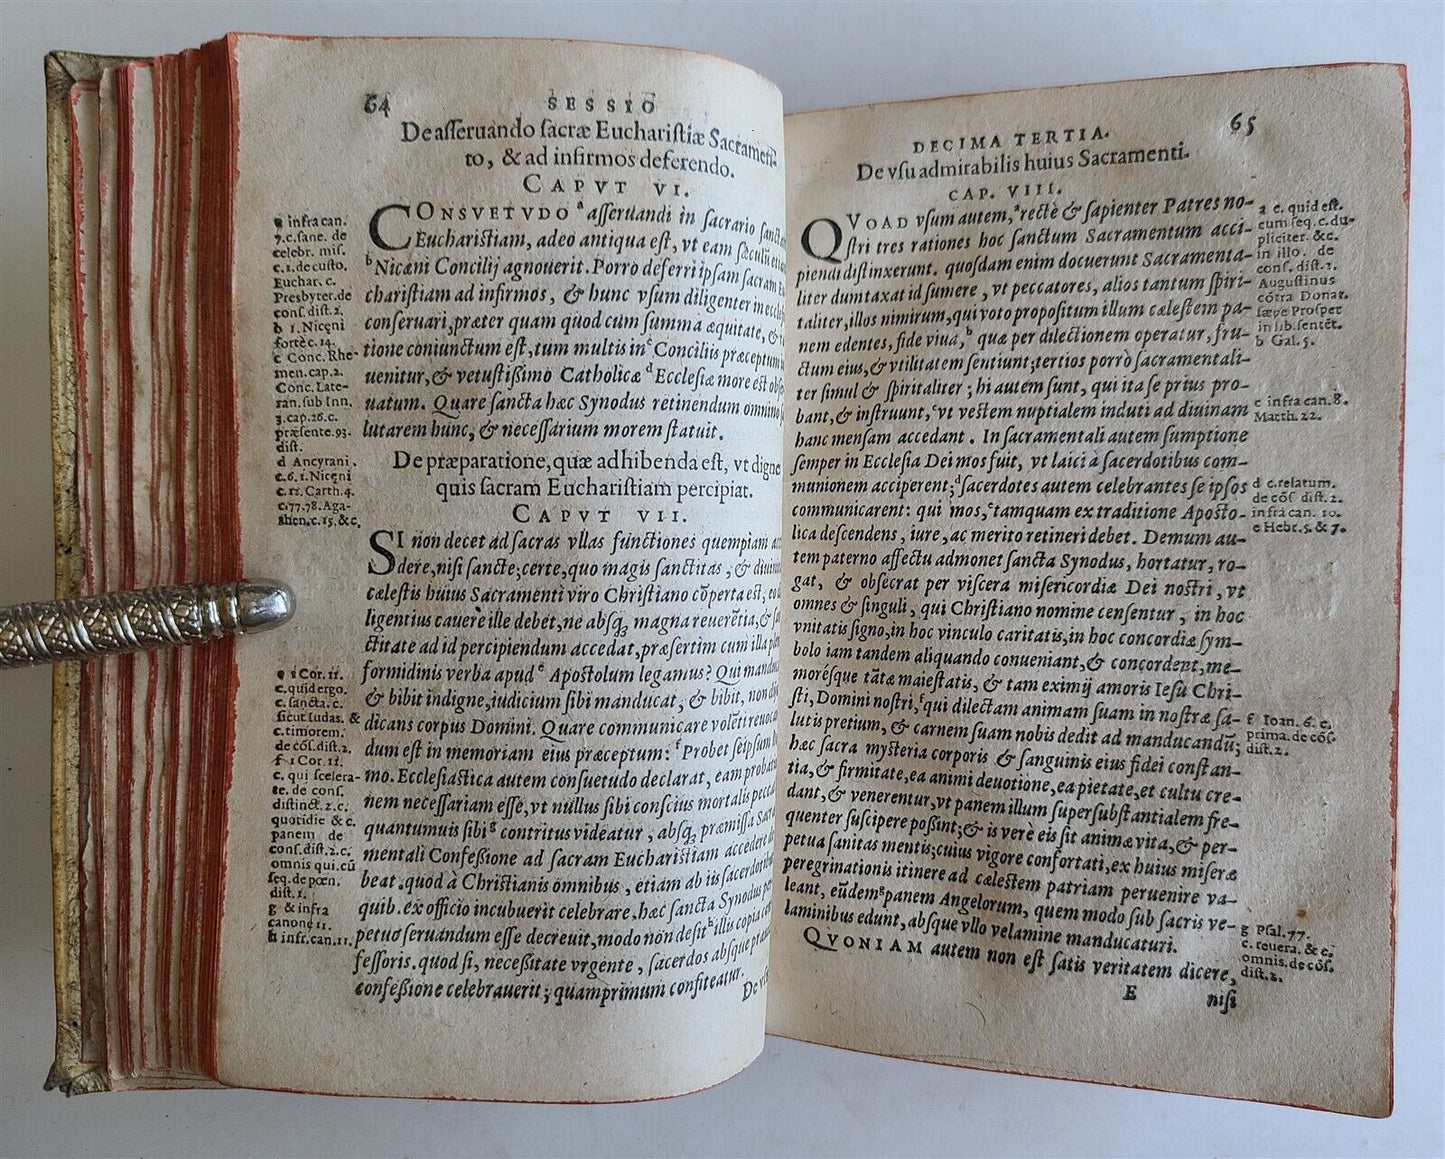 64
SESSIO
De asseruando sacræ Eucharistiæ Sacramen-
to, & ad infirmos deferendo.
CAPVT VI.
CONSVETVDO ᵃ asseruandi in sacrario sanctam
Eucharistiam, adeo antiqua est, vt eam sæculũ etiam
ᵇ Nicæni Concilij agnouerit. Porro deferri ipsam sacram Eu
charistiam ad infirmos, & hunc vsum diligenter in eccle
conseruari, præter quam quod cum summa æquitate, &
tione coniunctum est, tum multis in ᶜ Conciliis præceptum
uenitur, & vetustißimo Catholicæ ᵈ Ecclesiæ more est obser
uatum. Quare sancta hæc Synodus retinendum omnino
lutarem hunc, & necessarium morem statuit.
a infra can.
7. c. sane. de
celebr. mis.
c. 1. de custo.
Euchar. c.
Presbyter. de
cons. dist. 2.
b 1. Niceni
fortè c. 14.
c Conc. Rhe-
men. cap. 2.
Conc. Late-
ran. sub Inn.
3. cap. 26. c.
præsente. 93.
dist.
d Ancyrani.
c. 6. 1. Niceni
c. 12. Carth. 4.
c. 77. 78. Aga-
then. c. 15. &c.
De præparatione, quæ adhibenda est, vt digne
quis sacram Eucharistiam percipiat.
CAPVT VII.
SI non decet ad sacras vllas functiones quempiam ac
dere, nisi sancte; certe, quo magis sanctitas, & diuini
cælestis huius Sacramenti viro Christiano cõperta est, eo
ligentius cauere ille debet, ne absq; magna reuerẽtia, & san
ctitate ad id percipiendum accedat, præsertim cum illa plena
formidinis verba apud ᵉ Apostolum legamus? Qui manducat
& bibit indigne, iudicium sibi manducat, & bibit, non diiu
dicans corpus Domini. Quare communicare volẽti reuocan
dum est in memoriam eius præceptum: ᶠ Probet seipsum ho
mo. Ecclesiastica autem consuetudo declarat, eam probatio
nem necessariam esse, vt nullus sibi conscius mortalis peccati
quantumuis sibi ᵍ contritus videatur, absq; præmissa Sacra
mentali Confeßione ad sacram Eucharistiam accedere de
beat. quod à Christianis omnibus, etiam ab iis sacerdotibus
quib. ex officio incubuerit celebrare, hæc sancta Synodus per
petuo seruandum esse decreuit, modo non desit ʰ illis copia con
fessoris. quod si, neceßitate vrgente, sacerdos absque præuia
confeßione celebrauerit; quamprimum confiteatur.
De vsu
e 1 Cor. 11.
c. quid ergo.
c. sancta. c.
sicut Iudas. &
c. timorem.
de cõs. dist. 2.
f 1 Cor. 11.
c. qui scelera-
te. de cons.
distinct. 2. c.
quotidie & c.
panem de
cons. dist. 2. c.
omnis qui. cũ
seq. de pœn.
dist. 1.
g & infra
canone 11.
h infr. can. 11.
DECIMA TERTIA.
65
De vsu admirabilis huius Sacramenti.
CAP. VIII.
QVOAD vsum autem, ᵃ rectè & sapienter Patres no-
stri tres rationes hoc sanctum Sacramentum acci-
piendi distinxerunt. quosdam enim docuerunt Sacramenta-
liter dumtaxat id sumere, vt peccatores, alios tantum spiri-
taliter, illos nimirum, qui voto propositum illum cælestem pa-
nem edentes, fide viua, ᵇ quæ per dilectionem operatur, fru-
ctum eius, & vtilitatem sentiunt; tertios porrò sacramentali-
ter simul & spiritaliter; hi autem sunt, qui ita se prius pro-
bant, & instruunt, ᶜ vt vestem nuptialem induti ad diuinam
hanc mensam accedant. In sacramentali autem sumptione
semper in Ecclesia Dei mos fuit, vt laici à sacerdotibus com-
munionem acciperent; ᵈ sacerdotes autem celebrantes se ipsos
communicarent: qui mos, ᵉ tamquam ex traditione Aposto-
lica descendens, iure, ac merito retineri debet. Demum au-
tem paterno affectu admonet sancta Synodus, hortatur, ro-
gat, & obsecrat per viscera misericordiæ Dei nostri, vt
omnes & singuli, qui Christiano nomine censentur, in hoc
vnitatis signo, in hoc vinculo caritatis, in hoc concordiæ sym-
bolo iam tandem aliquando conueniant, & concordent, me-
morésque tãtæ maiestatis, & tam eximij amoris Iesu Chri-
sti, Domini nostri, ᶠ qui dilectam animam suam in nostræ sa-
lutis pretium, & carnem suam nobis dedit ad manducandũ;
hæc sacra mysteria corporis & sanguinis eius fidei constan-
tia, & firmitate, ea animi deuotione, ea pietate, et cultu cre-
dant, & venerentur, vt panem illum supersubstantialem fre-
quenter suscipere poßint; & is verè eis sit animæ vita, & per-
petua sanitas mentis; cuius vigore confortati, ex huius miseræ
peregrinationis itinere ad cælestem patriam peruenire va-
leant, eũdem ᵍ panem Angelorum, quem modo sub sacris ve-
laminibus edunt, absque vllo velamine manducaturi.
QVONIAM autem non est satis veritatem dicere,
E
nisi
a c. quid est.
cum seq. c. du-
pliciter. &c.
in illo. de
cons. dist. 2.
Augustinus
cõtra Donat.
sæpe Prosper
in lib. sentẽt.
b Gal. 5.
c infra can. 8.
Matth. 22.
d c. relatum.
de cõs dist. 2.
infra can. 10.
e Hebr. 5. & 7.
f Ioan. 6. c.
prima. de cõs.
dist. 2.
g Psal. 77.
c. reuera. & c.
omnis. de cõs.
dist. 2.